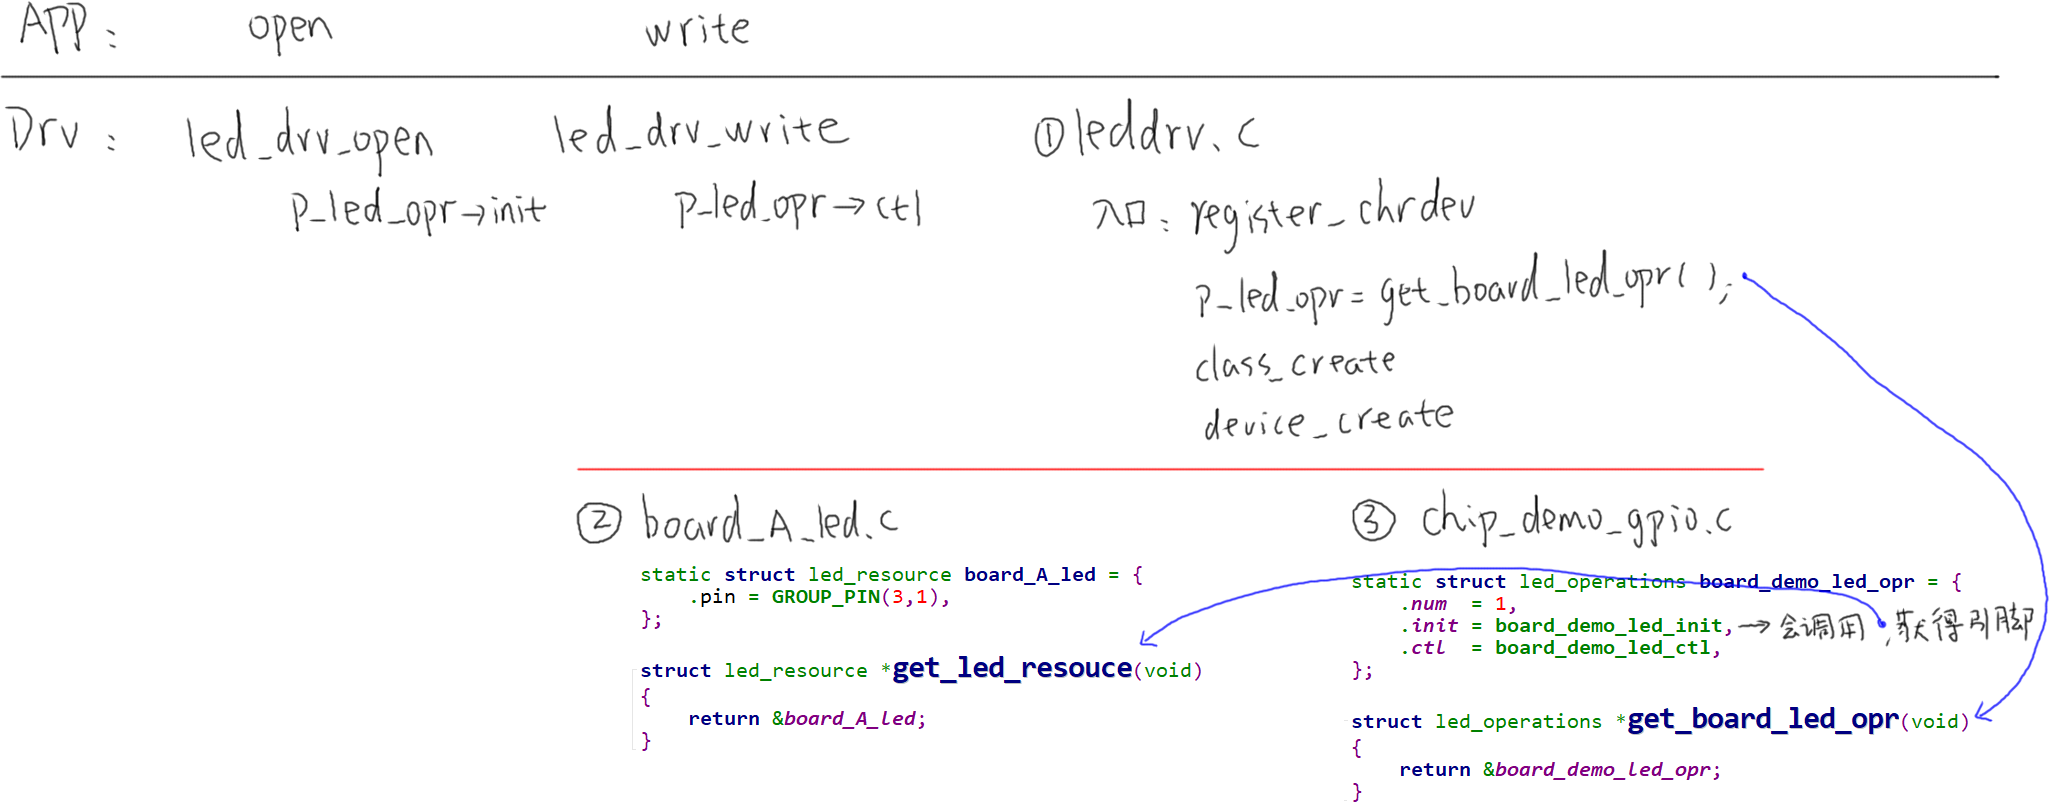 APP: open write
Drv: led_drv_open led_drv_write ①leddrv.c
p_led_opr→init p_led_opr→ctl 入口: register_chrdev
p_led_opr = get_board_led_opr();
class_create
device_create
② board_A_led.c
static struct led_resource board_A_led = {
.pin = GROUP_PIN(3,1),
};
struct led_resource *get_led_resouce(void)
{
return &board_A_led;
}
③ chip_demo_gpio.c
static struct led_operations board_demo_led_opr = {
.num = 1,
.init = board_demo_led_init, → 会调用 ,获得引脚
.ctl = board_demo_led_ctl,
};
struct led_operations *get_board_led_opr(void)
{
return &board_demo_led_opr;
}